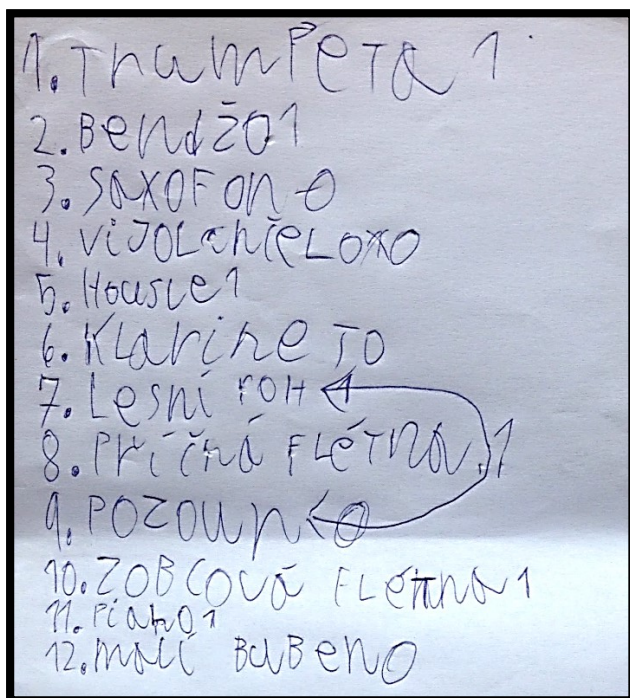 1. TRUMPeTA 1
2. Bendžo1
3. SAXOFON 0
4. viJOLčhčeLO 0
5. Housle1
6. KLArineT0
7. Lesní roH 1
8. Príčná FLéTNA 1
9. POZOUN 0
10. ZOBCová FLétna 1
11. Piano1
12. malí BuBeN0